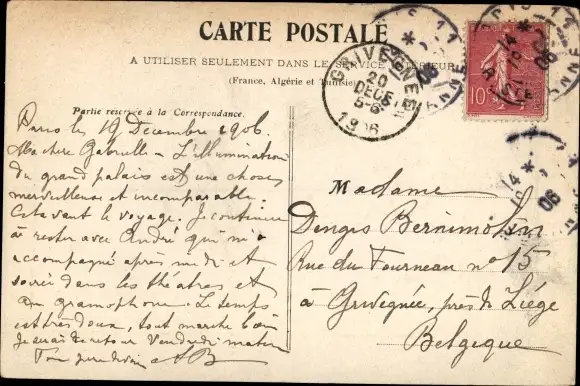 CARTE POSTALE
A UTILISER SEULEMENT DANS LE SERVICE INTÉRIEUR
(France, Algérie et Tunisie)
Partie réservée à la Correspondance.
Paris le 19 Decembre 1906.
Ma chere Gabrielle - L'illumination
du grand palais est une chose
merveilleuse et incomparable.
Cela vaut le voyage. Je continue
à rester avec André qui m'a
accompagné après midi et
soirée dans les théatres et
au gramophone. Le temps
est très doux, tout marche bien
Je serai de retour Vendredi matin
Ton AB
GRIVEGNEE
20
DECE
5-6
1906
14
06
10
14
06
Madame
Denges Bernimolin
Rue du Fourneau n° 15
à Grivegnée, près de Liége
Belgique